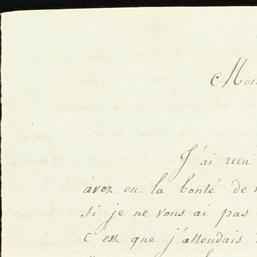 Mon
J'ai reçu
avez eu la bonté de
si je ne vous ai pas
c'est que j'attendais